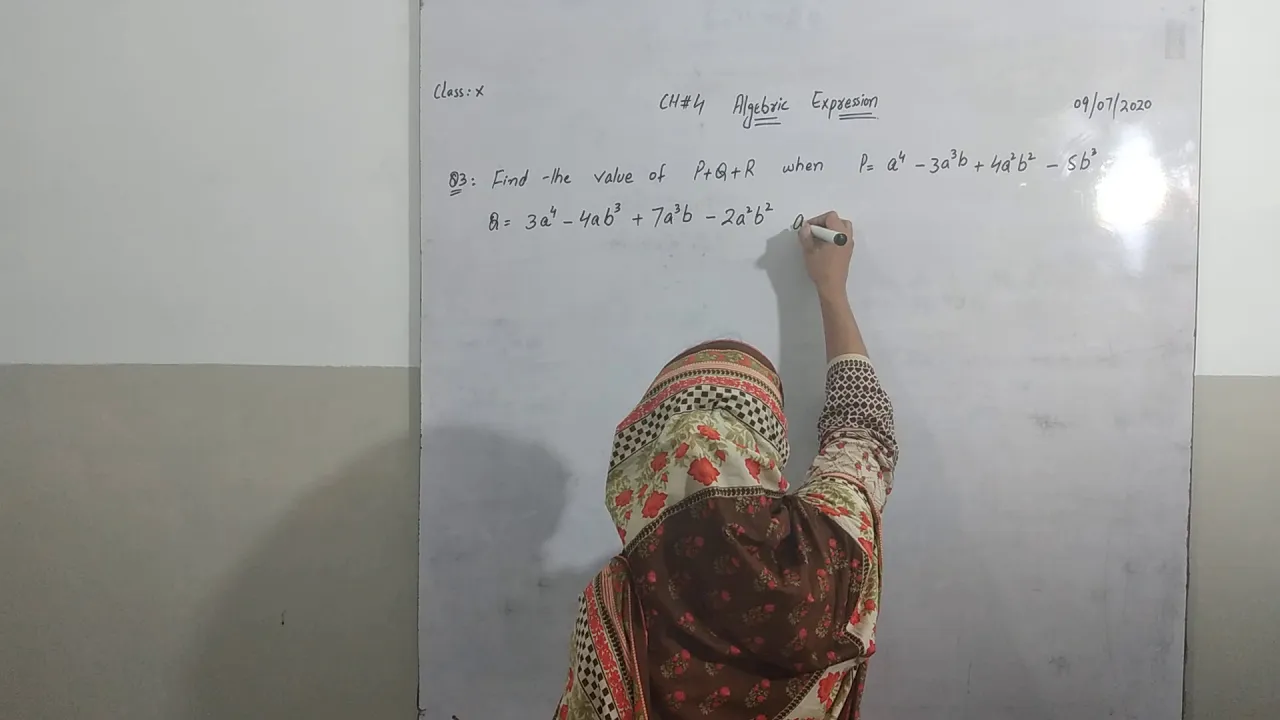 Class: X
CH#4 Algebric Expression
09/07/2020
Q3: Find the value of P+Q+R when P= a⁴ - 3a³b + 4a²b² - 5b³
Q= 3a⁴ - 4ab³ + 7a³b - 2a²b² a